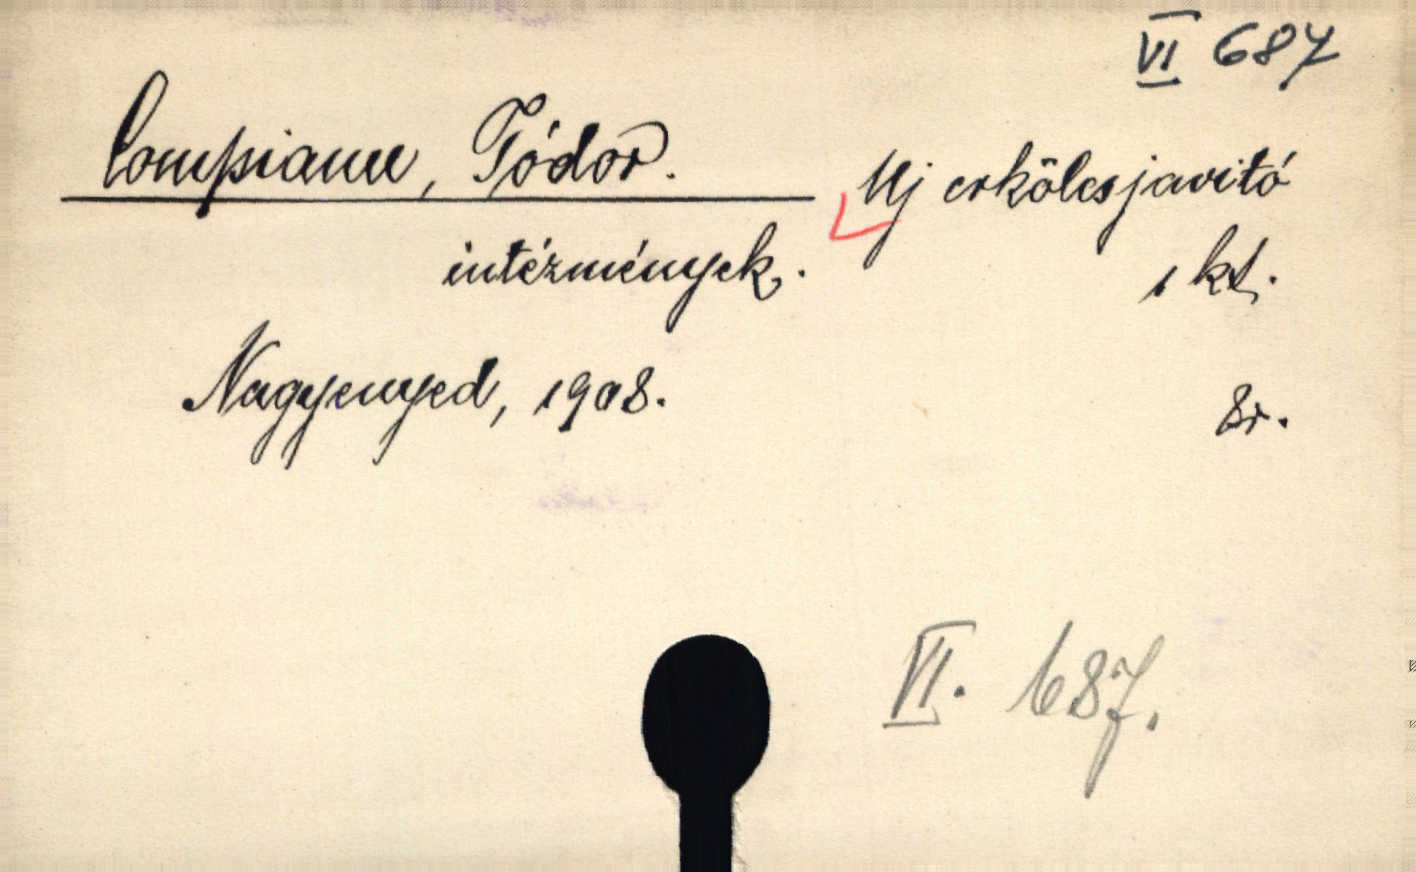 VI 687
Compianu, Tódor. Uj erkölcsjavitó
intézmények. 1 kt.
Nagyenyed, 1908. 8r.
VI. 687.